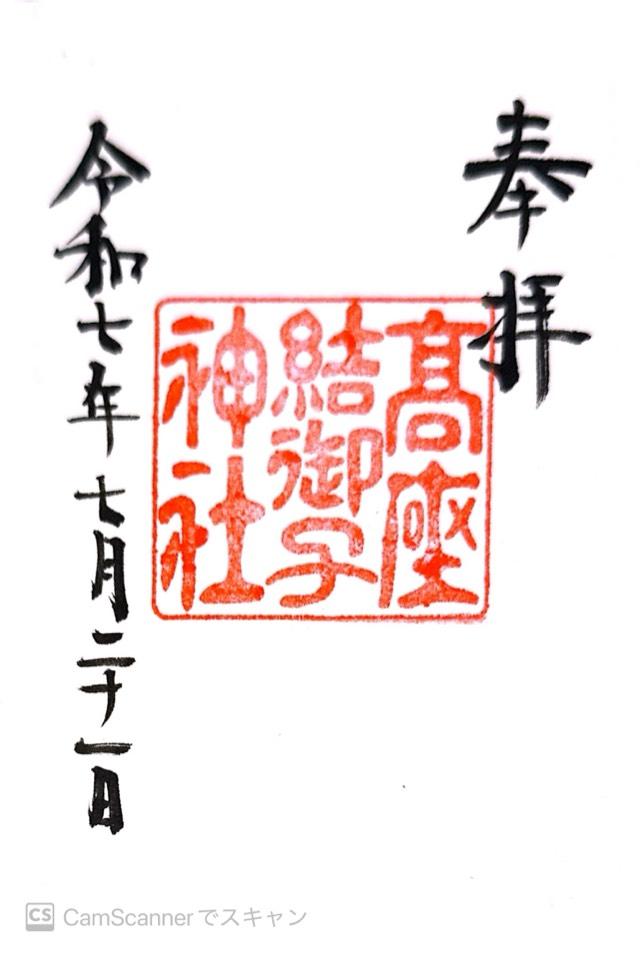 奉拝
髙座
結御子
神社
令和七年七月二十一日
CS CamScannerでスキャン